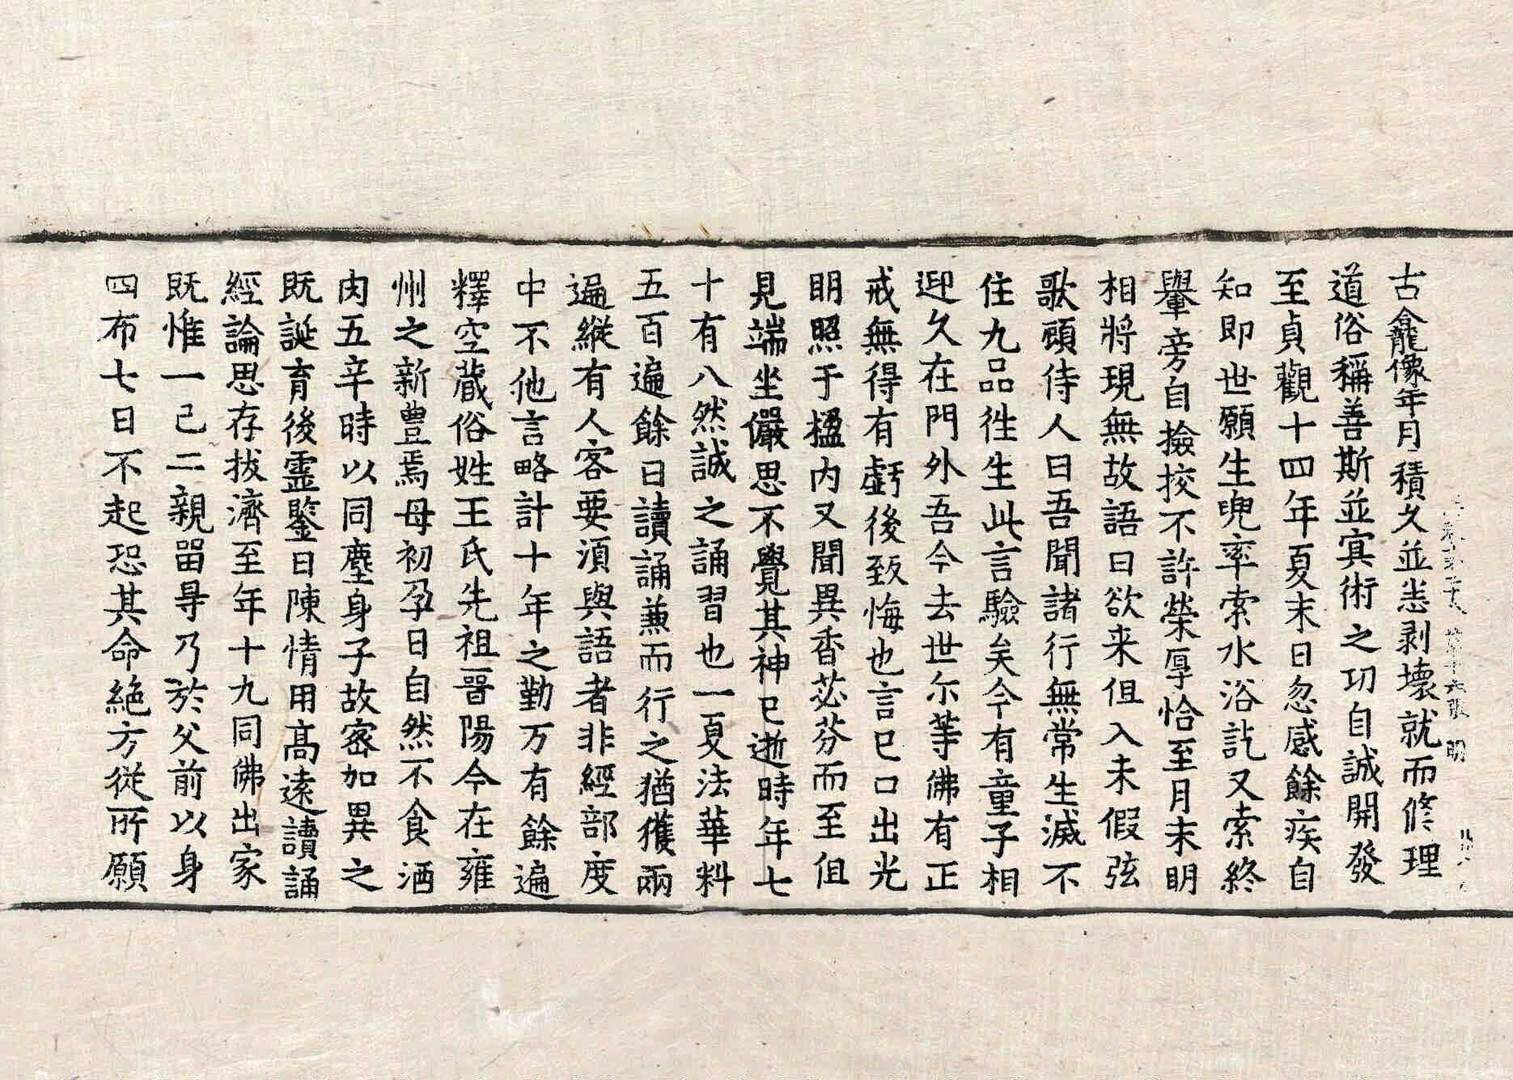 古龕像年月積久並悉剥壞就而修理
道俗稱善斯並寘術之功自誠開發
至貞觀十四年夏末日忽感餘疾自
知即世願生兜率索水浴訖又索終
轝旁自撿挍不許榮厚恰至月末明
相將現無故語曰欲来但入未假弦
歌顧侍人曰吾聞諸行無常生滅不
住九品徃生此言驗矣今有童子相
迎久在門外吾今去世尒等佛有正
戒無得有虧後致悔也言已口出光
明照于楹内又聞異香苾芬而至但
見端坐儼思不覺其神已逝時年七
十有八然誠之誦習也一夏法華料
五百遍餘日讀誦兼而行之猶獲兩
遍縱有人客要須與語者非經部度
中不他言略計十年之勤万有餘遍
釋空藏俗姓王氏先祖晉陽今在雍
州之新豐焉母初孕日自然不食酒
肉五辛時以同塵身子故密加異之
既誕育後靈鑒日陳情用高遠讀誦
經論思存拔濟至年十九同佛出家
既惟一己二親畱㝵乃於父前以身
四布七日不起恐其命絶方從所願